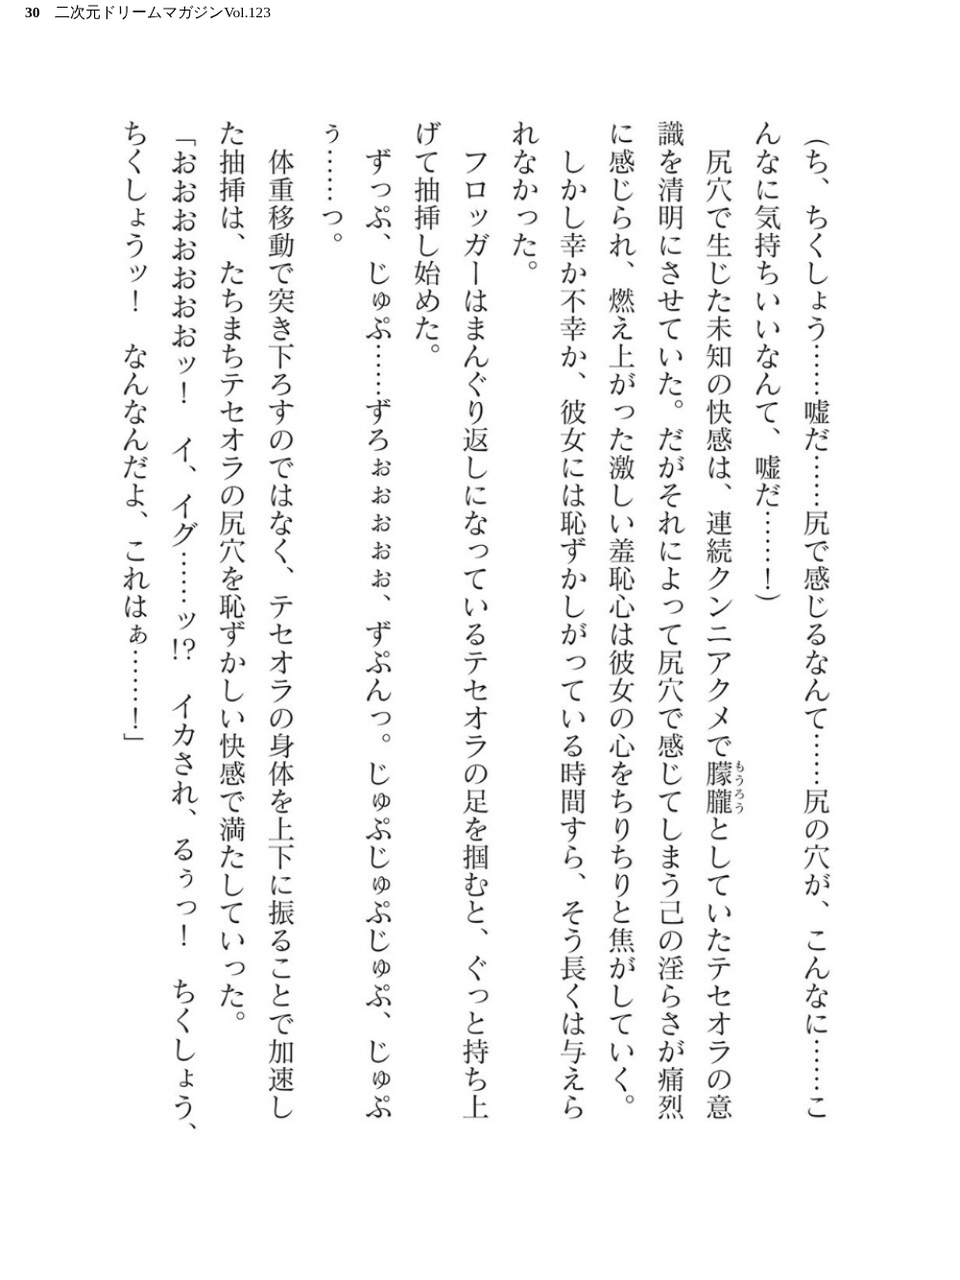 30 二次元ドリームマガジンVol.123
（ち、ちくしょう……嘘だ……尻で感じるなんて……尻の穴が、こんなに……こ
んなに気持ちいいなんて、嘘だ……！）
　尻穴で生じた未知の快感は、連続クンニアクメで朦朧としていたテセオラの意
もうろう
識を清明にさせていた。だがそれによって尻穴で感じてしまう己の淫らさが痛烈
に感じられ、燃え上がった激しい羞恥心は彼女の心をちりちりと焦がしていく。
　しかし幸か不幸か、彼女には恥ずかしがっている時間すら、そう長くは与えら
れなかった。
　フロッガーはまんぐり返しになっているテセオラの足を掴むと、ぐっと持ち上
げて抽挿し始めた。
　ずっぷ、じゅぷ……ずろぉぉぉぉぉ、ずぷんっ。じゅぷじゅぷじゅぷ、じゅぷ
ぅ……っ。
　体重移動で突き下ろすのではなく、テセオラの身体を上下に振ることで加速し
た抽挿は、たちまちテセオラの尻穴を恥ずかしい快感で満たしていった。
「おおおおおおおッ！　イ、イグ……ッ!?　イカされ、るぅっ！　ちくしょう、
ちくしょうッ！　なんなんだよ、これはぁ……！」